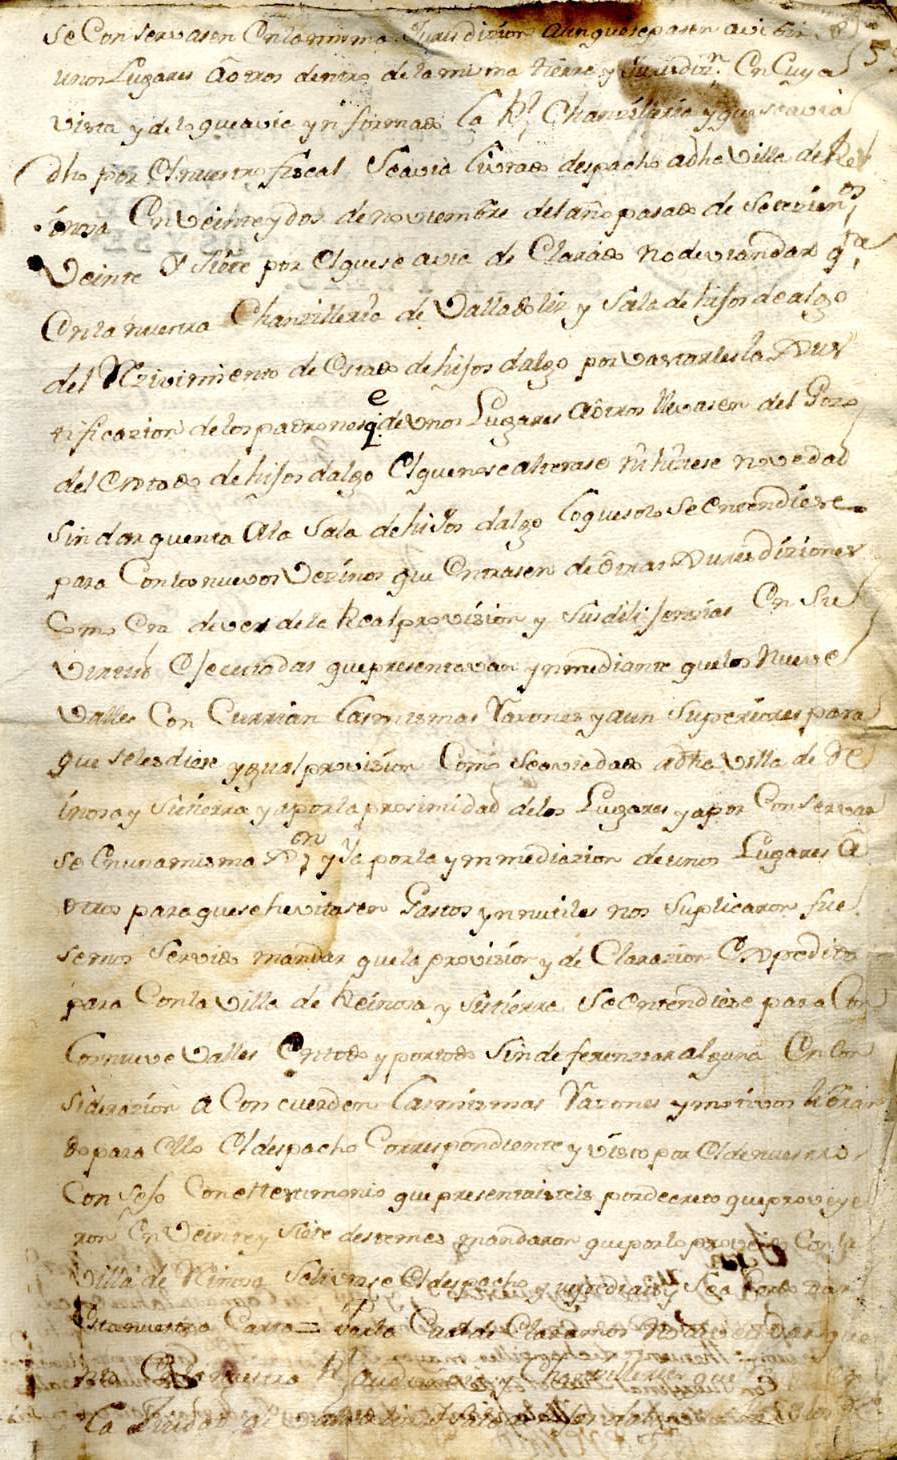 se Conservasen En la misma Jurisdizion aunque se pasen a vivir de
unos Lugares a otros dentro de la misma tierra y jurisdizn. En Cuya
vista y de lo que avia ynformado la Rl. Chanzilleria y que se avia
dho por El nuestro fiscal Se avia librado despacho a dha Villa de Rei
inosa En Veinte y dos de noviembre del año pasado de Setezientos
Veinte y siete por El que se avia de Clarado no deviandar qta
En la nuestra Chanzilleria de Valladolid y Sala de hijos de algo
del Rezivimiento de Estado de hijos dalgo por vastarles la Jus
tificazion de los padrones q de Unos Lugares a otros llevasen del Gozo
e
del Estado de hijos dalgo El que no se alterase ni hiziese novedad
Sin dar quenta A la Sala de hijos dalgo lo que solo se Entendiese
para Con los nuevos Vezinos que Entrasen de otras Jurisdiziones
Como Era de ver de la Real provision y sus dilijenzias En su
Virtud Ejecutadas que presentavan y mediante que los Nueve
Valles Con Currian las mismas Razones y aun Superiores para
que seles diese ygual provision Como se avia dado a dha villa de Re
inosa y su tierra ya por la prosimidad de los Lugares ya por Conservar
se En una misma Jn y Ya por la ynmediazion de unos Lugares a
on
otros para que se hevitasen Gastos ynutiles nos Suplicaron fue
semos Servido mandar que la provision y de Clarazion Expedida
para Con la villa de Reinosa y su tierra Se Entendiese para Con
los nueve Valles En todo y por todo Sin deferenzia alguna En Con
siderazion a Con currir las mismas Razones y motivos libran
do para Ello El despacho Correspondiente y visto por El de nuestro
Consejo Con el testimonio que presentasteis por decreto que proveye
ron En Veinte y Siete de este mes mandaron que por lo proveido Con la
villa de Reinosa Se librase El despacho que pedias y
Esta nuestra Carta = Por la Cual de Claramos
En la nuestra Rl. audienzia y Chanzilleria que En
la Ziudad de Valladolid